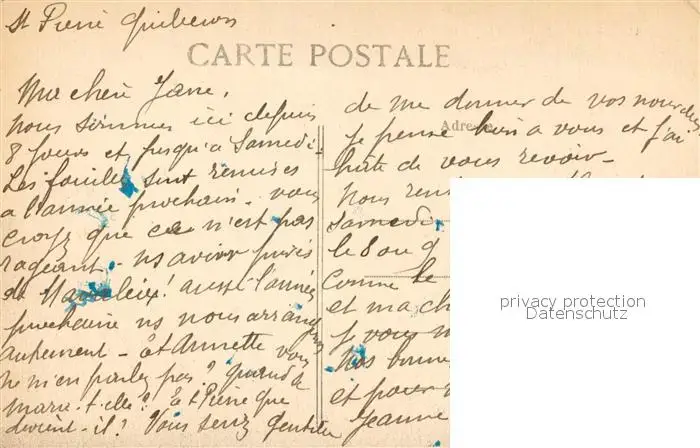 St Pierre Quiberon
CARTE POSTALE
Ma chère Jane,
Nous sommes ici depuis
8 jours et jusqu'a Samedi.
Les fouilles sont remises
a l'année prochain. vous
croyez que ce n'est pas
rageant. ns avions
de ! aussi l'année
prochaine ns nous arrangerons
autrement - Et Annette vous
ne m'en parlez pas? quand a
marie-t-elle? Et Pierre que
devient-il? Vous seriez gentille
de me donner de vos nouvelles
Adresse
Je pense bien a vous et j'ai
hâte de vous revoir -
Nous
Samedi
le 8 ou 9
Comme le
et ma ch
Je vous
nos bonne
et pour
Jeanne
privacy protection
Datenschutz